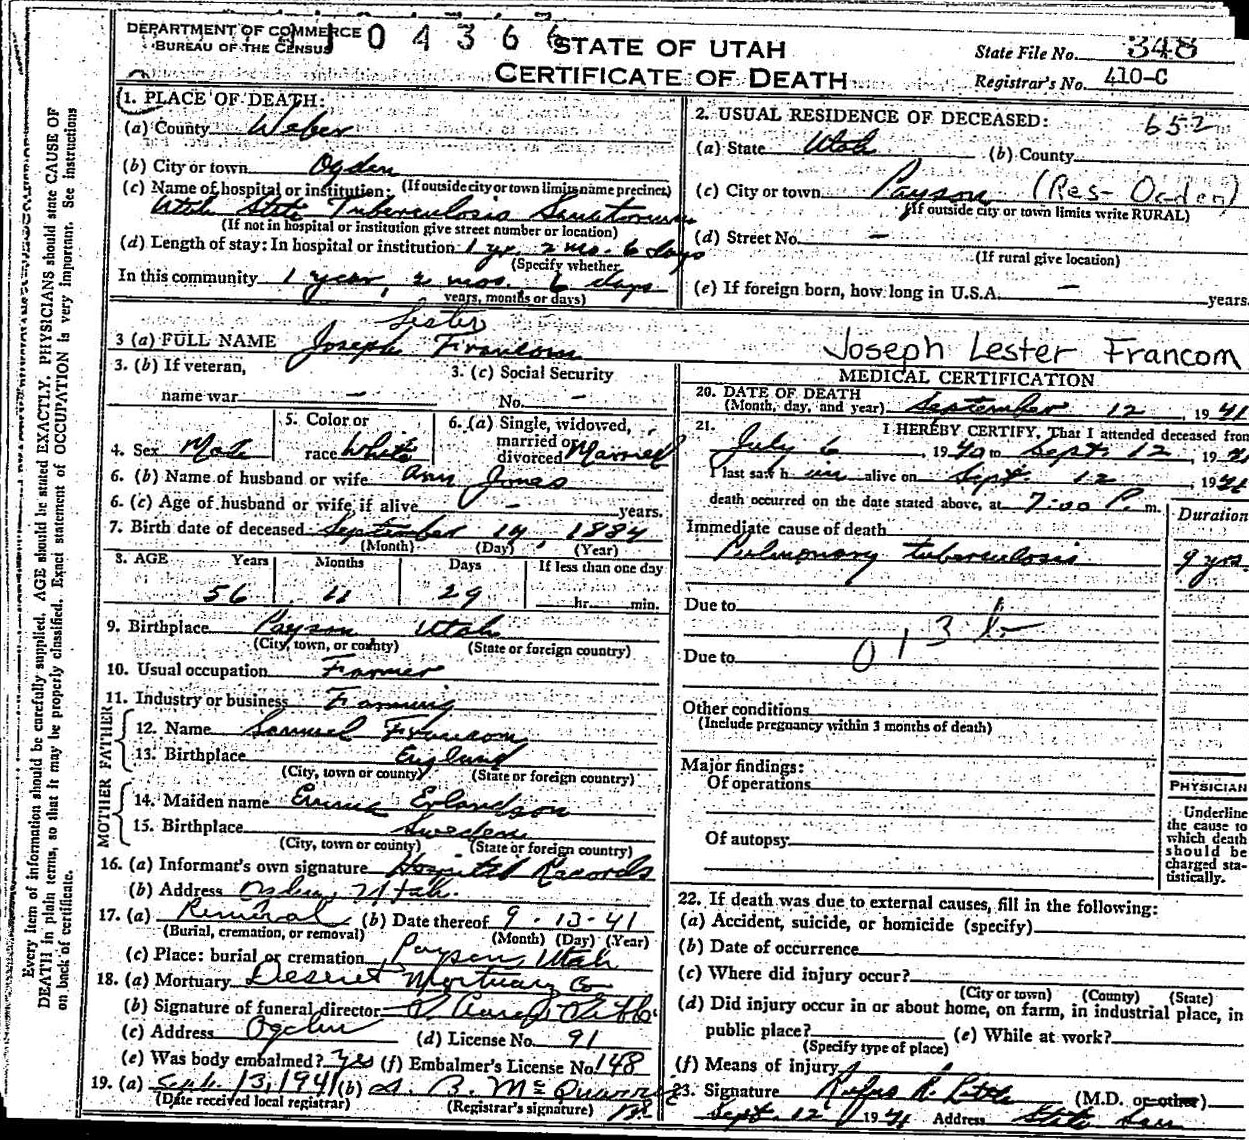 DEPARTMENT OF COMMERCE
BUREAU OF THE CENSUS
04366
STATE OF UTAH
CERTIFICATE OF DEATH
State File No. 348
Registrar's No. 410-C
1. PLACE OF DEATH:
(a) County Weber
(b) City or town Ogden
(If outside city or town limits name precinct)
(c) Name of hospital or institution:
Utah State Tuberculosis Sanatorium
(If not in hospital or institution give street number or location)
(d) Length of stay: In hospital or institution 1 yr. 2 mo. 6 days
(Specify whether
In this community 1 year, 2 mos. 6 days
years, months or days)
2. USUAL RESIDENCE OF DECEASED: 652
(a) State Utah (b) County
(c) City or town Payson (Res- Ogden)
(If outside city or town limits write RURAL)
(d) Street No. –
(If rural give location)
(e) If foreign born, how long in U.S.A. – years.
Lester
3 (a) FULL NAME Joseph Francom
Joseph Lester Francom
3. (b) If veteran,
name war –
3. (c) Social Security
No. –
4. Sex Male
5. Color or
race White
6. (a) Single, widowed,
married or
divorced Married
6. (b) Name of husband or wife Ann Jones
6. (c) Age of husband or wife, if alive – years.
7. Birth date of deceased September 14, 1884
(Month) (Day) (Year)
8. AGE Years Months Days If less than one day
56 11 29 hr. min.
9. Birthplace Payson Utah
(City, town, or county) (State or foreign country)
10. Usual occupation Farmer
11. Industry or business Farming
FATHER
12. Name Samuel Francom
13. Birthplace England
(City, town or county) (State or foreign country)
MOTHER
14. Maiden name Emma Erlandson
15. Birthplace Sweden
(City, town or county) (State or foreign country)
16. (a) Informant's own signature Hospital Records
(b) Address Ogden, Utah.
17. (a) Removal (b) Date thereof 9-13-41
(Burial, cremation, or removal) (Month) (Day) (Year)
(c) Place: burial or cremation Payson, Utah
18. (a) Mortuary Deseret Mortuary Co
(b) Signature of funeral director
(c) Address Ogden (d) License No. 91
(e) Was body embalmed? Yes (f) Embalmer's License No. 148
19. (a) Sept. 13, 1941 (b)
(Date received local registrar) (Registrar's signature)
MEDICAL CERTIFICATION
20. DATE OF DEATH
(Month, day, and year) September 12, 1941
21. I HEREBY CERTIFY, That I attended deceased from
July 6, 1940 to Sept. 12, 1941
I last saw him alive on Sept. 12, 1941
death occurred on the date stated above, at 7:00 P. m.
Immediate cause of death Duration
Pulmonary tuberculosis 9 yrs.
Due to
013 b
Due to
Other conditions
(Include pregnancy within 3 months of death)
Major findings:
Of operations
Of autopsy
PHYSICIAN
Underline
the cause to
which death
should be
charged sta-
tistically.
22. If death was due to external causes, fill in the following:
(a) Accident, suicide, or homicide (specify)
(b) Date of occurrence
(c) Where did injury occur?
(City or town) (County) (State)
(d) Did injury occur in or about home, on farm, in industrial place, in
public place? (e) While at work?
(Specify type of place)
(f) Means of injury
23. Signature Rufus R. Little (M.D. or other)
Sept. 12 1941 Address State San
Every item of information should be carefully supplied. AGE should be stated EXACTLY. PHYSICIANS should state CAUSE OF
DEATH in plain terms, so that it may be properly classified. Exact statement of OCCUPATION is very important. See instructions
on back of certificate.